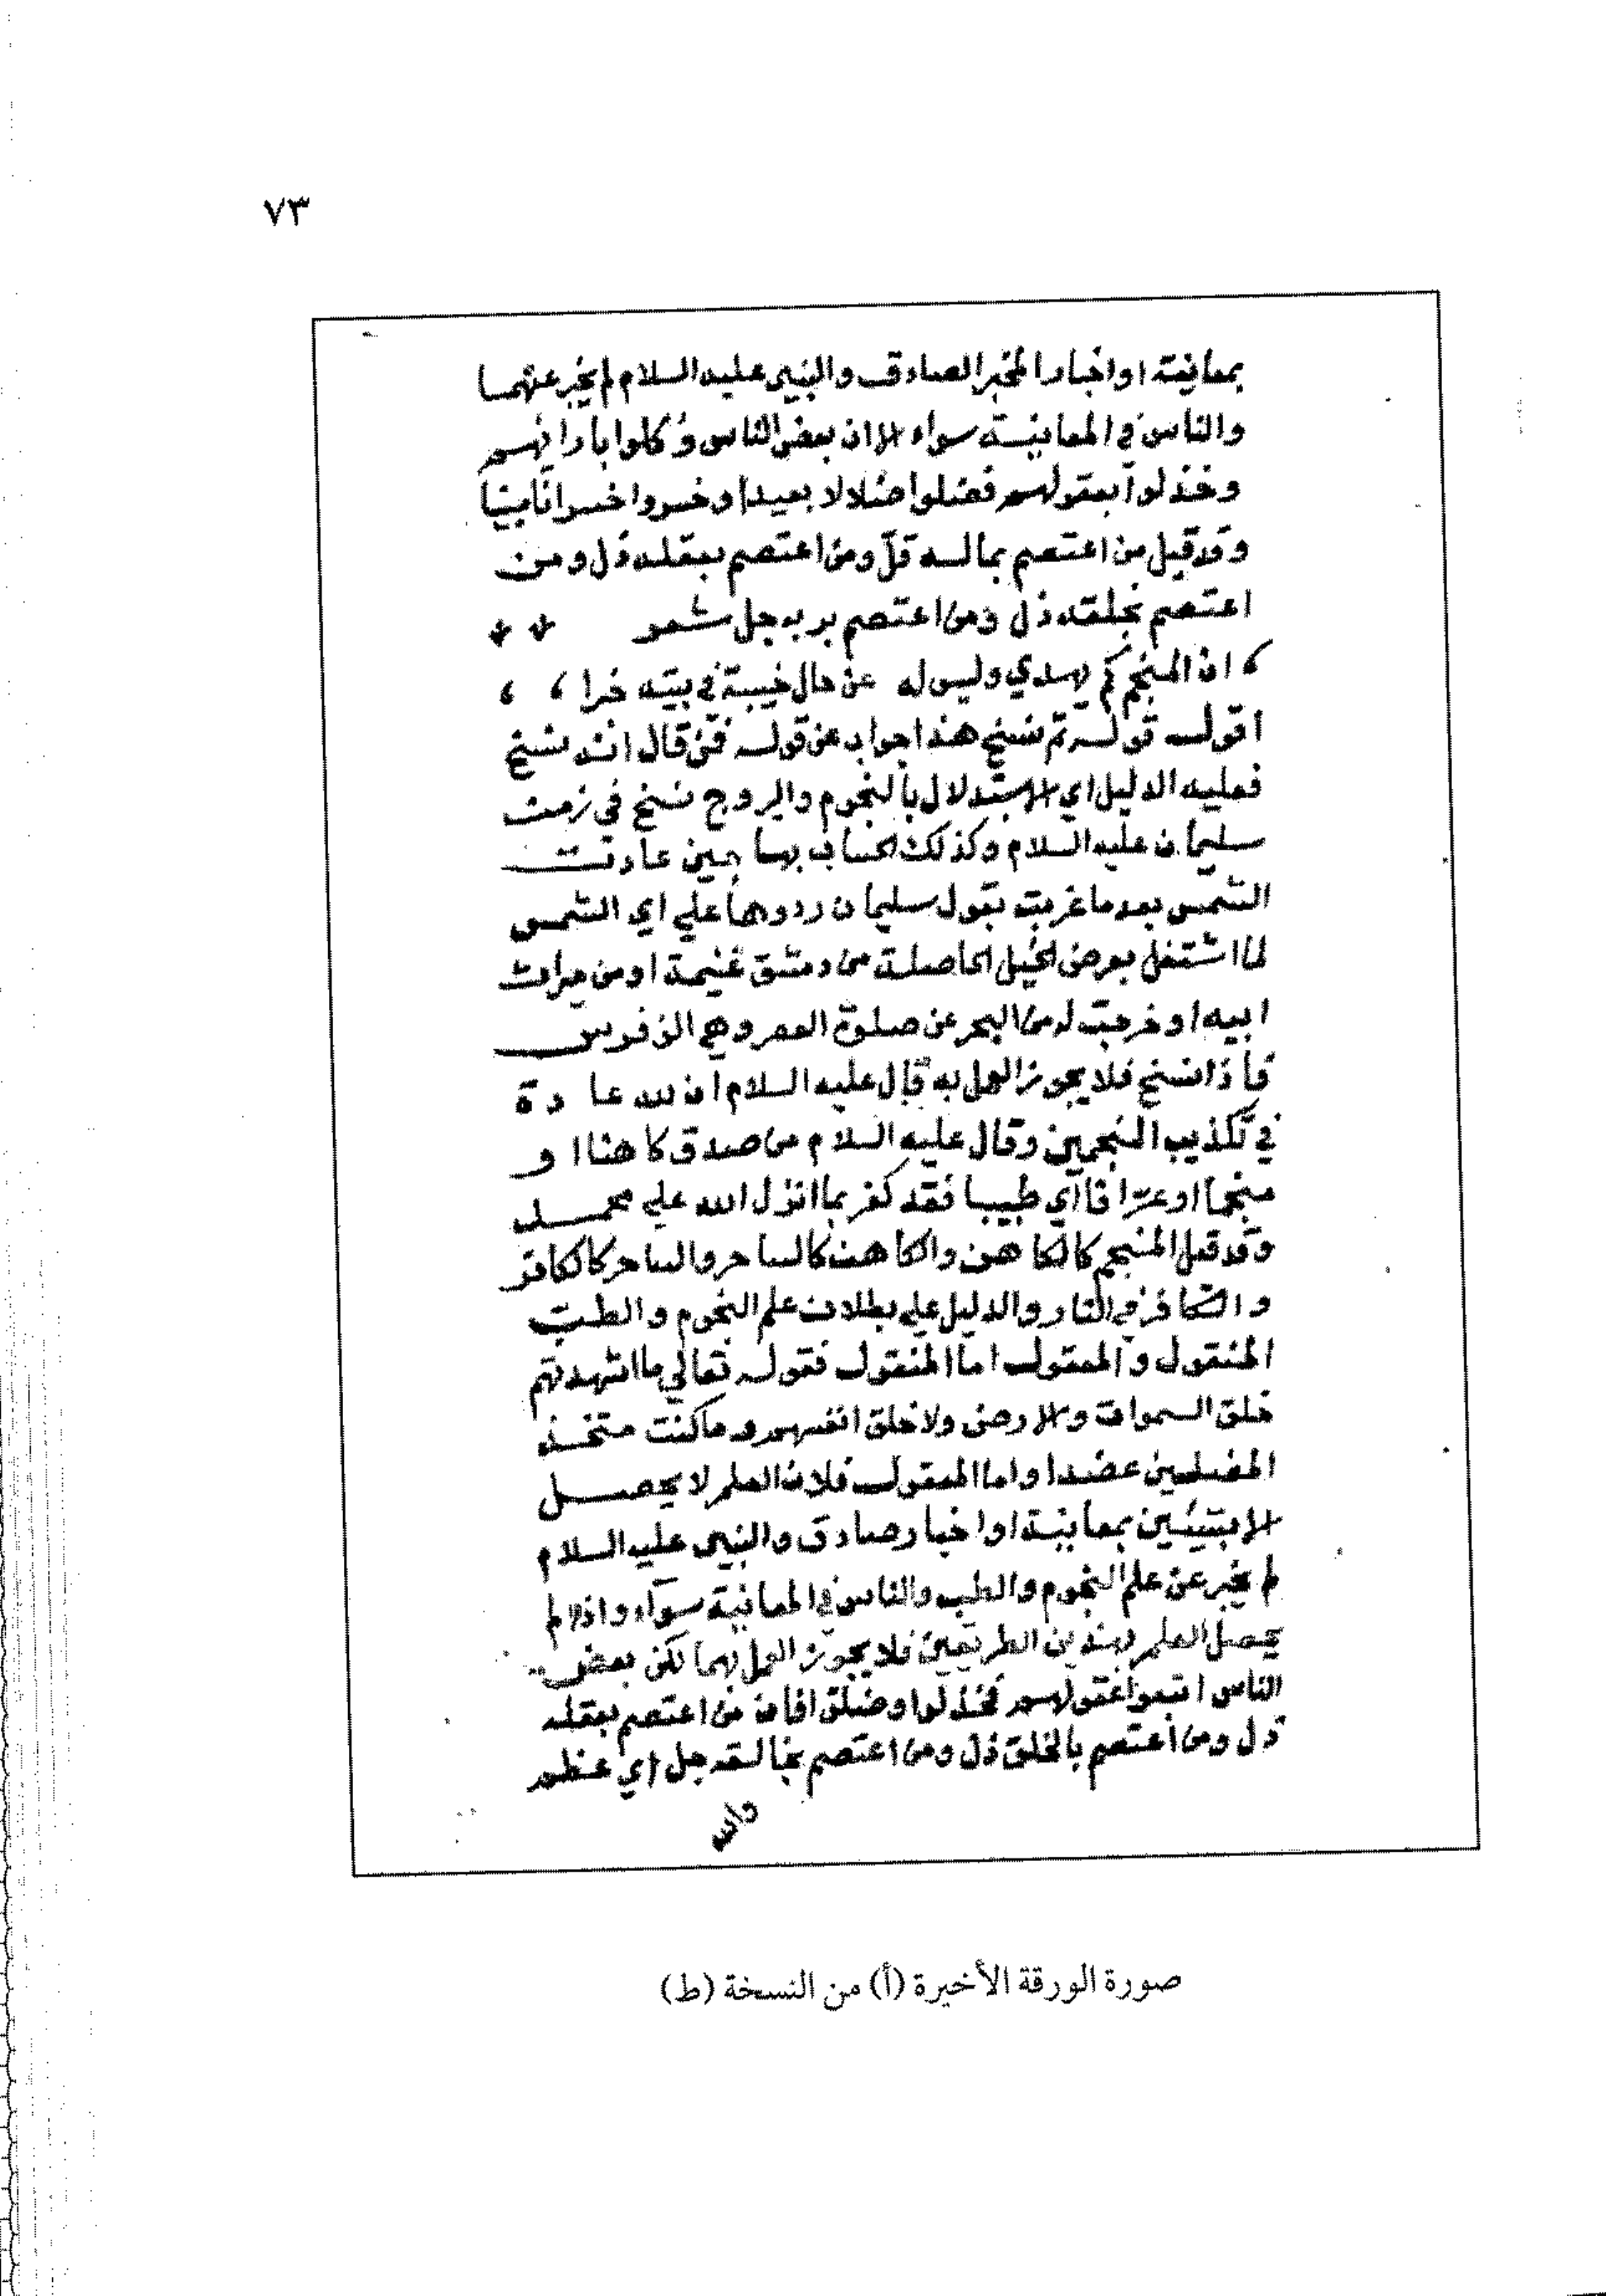 ٧٣
بمعاينة او اخبار المخبر الصادق والنبي عليه السلام لم يخبر عنهما
والناس في المعاينة سواء الا ان بعض الناس وكلوا بارائهم
وخذلوا بعقولهم فضلوا ضلالا بعيدا وخسروا خسرانا مبينا
وقد قيل من اعتصم بماله قل ومن اعتصم بعقله ذل ومن
اعتصم بخلقه ذل ومن اعتصم بربه جل شعر
ان المنجم كم يهدي وليس له عن حال خيبة في بيته خرا
اقول قوله ثم نسخ هذا جواب عن قوله فمن قال انه نسخ
فعليه الدليل اي الاستدلال بالنجوم والبروج نسخ في زمن
سليمان عليه السلام وكذلك الحساب بها حين عادت
الشمس بعد ما غربت بقول سليمان ردوها علي اي الشمس
لما اشتغل بعرض الخيل الحاصلة من دمشق غنيمة او من ميراث
ابيه او خرجت له من البحر عن صلوة العصر وهي الف فرس
فاذا نسخ فلا يجوز العمل به قال عليه السلام ان لله عادة
في تكذيب المنجمين وقال عليه السلام من صدق كاهنا او
منجما او عرافا اي طبيبا فقد كفر بما انزل الله على محمد
وقد قيل المنجم كالكاهن والكاهن كالساحر والساحر كالكافر
والكافر في النار والدليل على بطلان علم النجوم والطب
المنقول والمعقول اما المنقول فقوله تعالي ما اشهدتهم
خلق السموات والارض ولا خلق انفسهم وما كنت متخذ
المضلين عضدا واما المعقول فلان العلم لا يحصل
الا بشيئين بمعاينة او اخبار صادق والنبي عليه السلام
لم يخبر عن علم النجوم والطب والناس في المعاينة سواء واذا لم
يحصل العلم بهذين الطريقين فلا يجوز العمل بهما لكن بعض
الناس اتبعوا عقولهم فخذلوا وضلوا فان من اعتصم بعقله
ذل ومن اعتصم بالخلق ذل ومن اعتصم بخالقه جل اي عظم
والله
صورة الورقة الأخيرة (أ) من النسخة (ط)